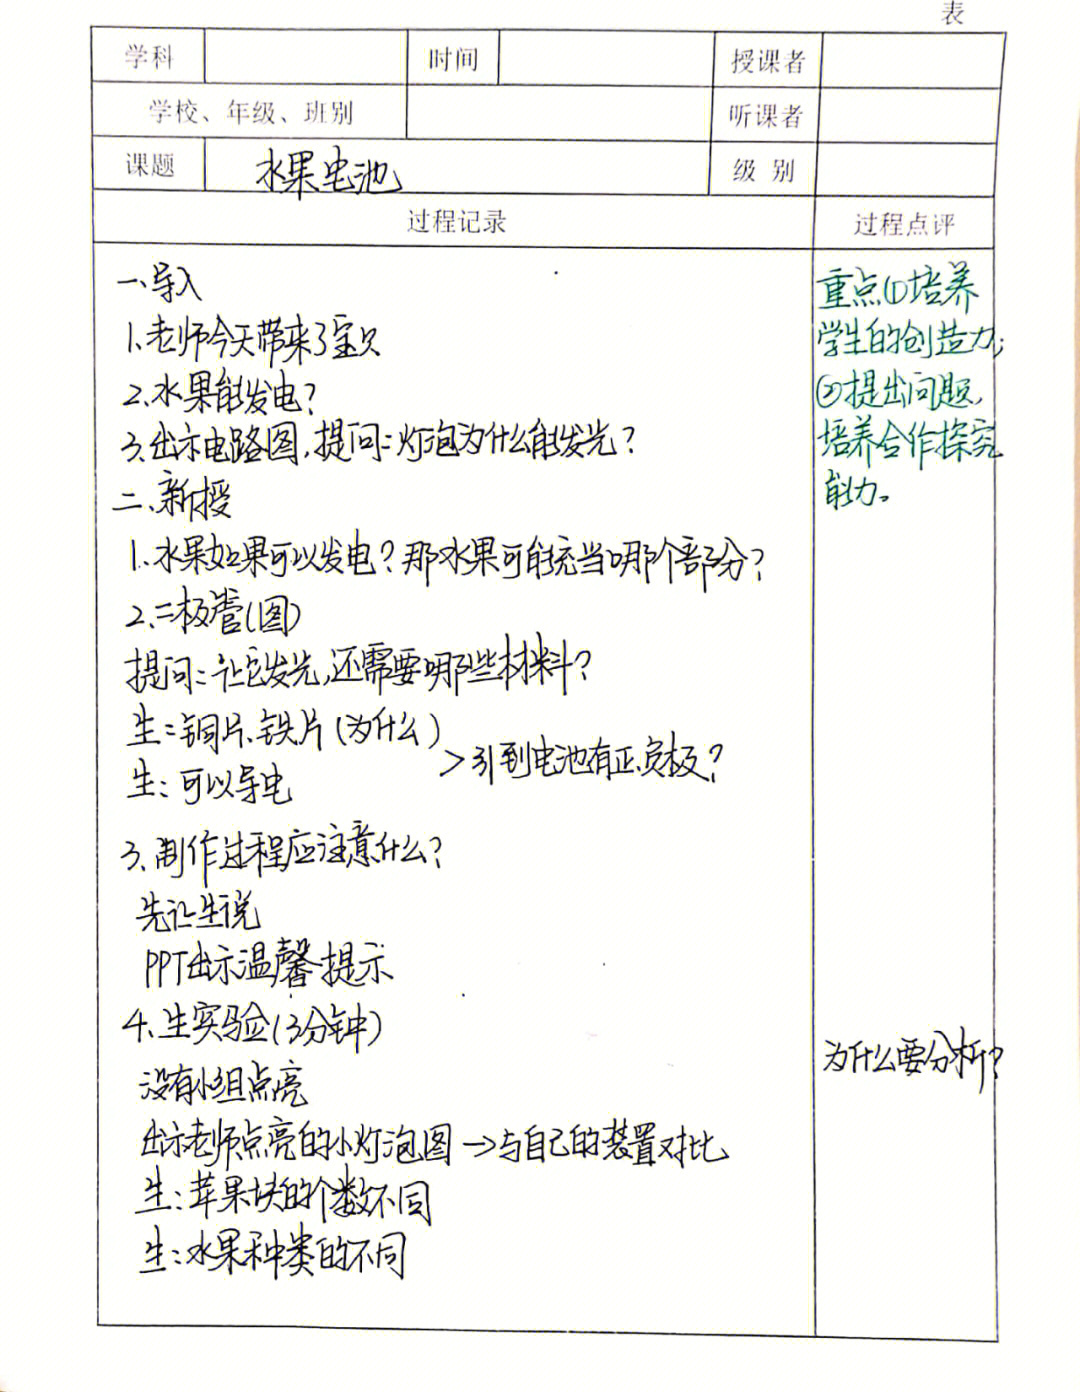 表
学科 时间 授课者
学校、年级、班别 听课者
课题 水果电池 级 别
过程记录 过程点评
一、导入
1.老师今天带来了宝贝
2.水果能发电？
3.出示电路图,提问:灯泡为什么能发光？
二、新授
1.水果如果可以发电？那水果可能充当哪个部分？
2.二极管(图)
提问:让它发光,还需要哪些材料？
生:铜片、铁片(为什么)
>引到电池有正、负极？
生:可以导电
3.制作过程应注意什么？
先让生说
PPT出示温馨提示
4.生实验(3分钟)
没有小组点亮
出示老师点亮的小灯泡图→与自己的装置对比
生:苹果块的个数不同
生:水果种类的不同
重点①培养
学生的创造力;
②提出问题,
培养合作探究
能力。
为什么要分析?